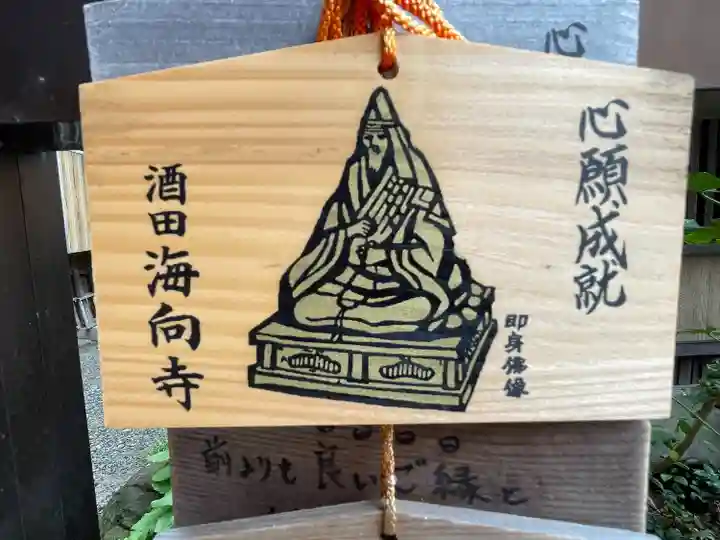 心願成就
即身佛像
酒田海向寺
心
前よりも良いご縁と